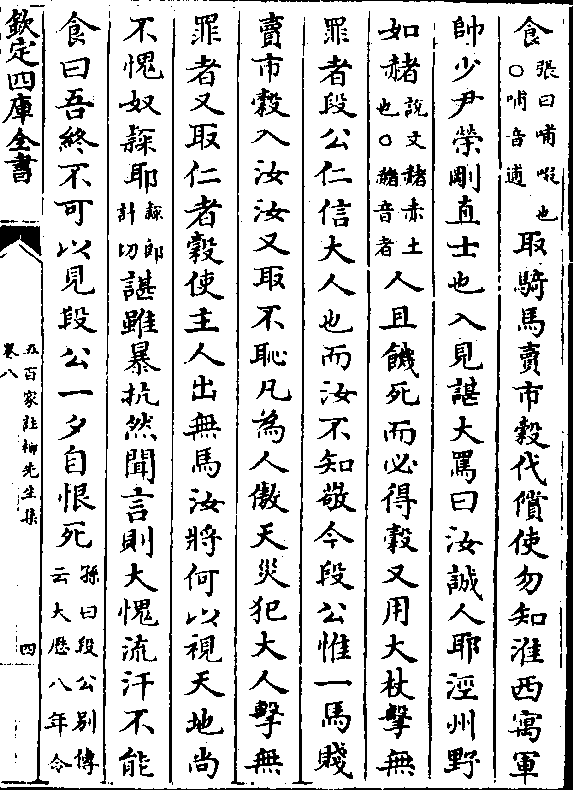 食張曰哺啜也○哺音逋取騎馬賣市穀代償使勿知淮西寓軍
帥少尹榮剛直士也入見諶大罵曰汝誠人耶涇州野
如赭說文赭赤土也○赭音者人且饑死而必得穀又用大杖擊無
罪者段公仁信大人也而汝不知敬今段公惟一馬賤
賣市穀入汝汝又取不恥凡為人傲天災犯大人擊無
罪者又取仁者穀使主人出無馬汝將何以視天地尚
不愧奴隸耶隸郎計切諶雖暴抗然聞言則大愧流汗不能
食曰吾終不可以見段公一夕自恨死孫曰段公別傳云大厯八年令
欽定四庫全書
五百家註柳先生集
卷八
四